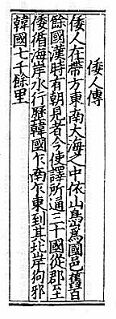 倭人傳
倭人在帶方東南大海之中依山島爲國邑舊百
餘國漢時有朝見者今使譯所通三十國從郡至
倭循海岸水行歷韓國乍南乍東到其北岸狗邪
韓國七千餘里